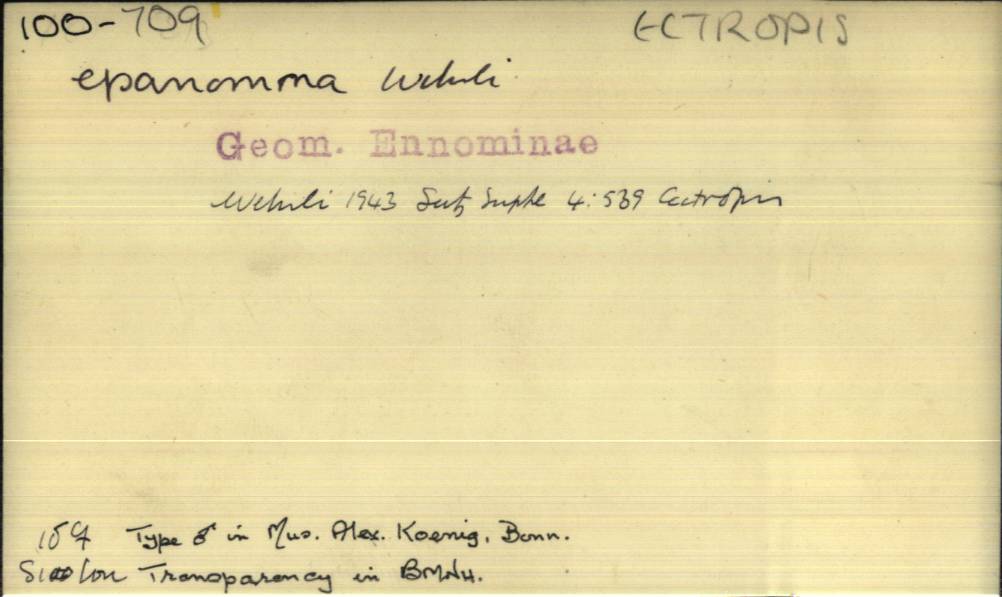 100-709 ECTROPIS
epanomma Wehrli
Geom. Ennominae
Wehrli 1943 Seitz Supple 4: 539 Ectropis
Type ♂ in Mus. Alex. Koenig, Bonn.
Transparency in BMNH.